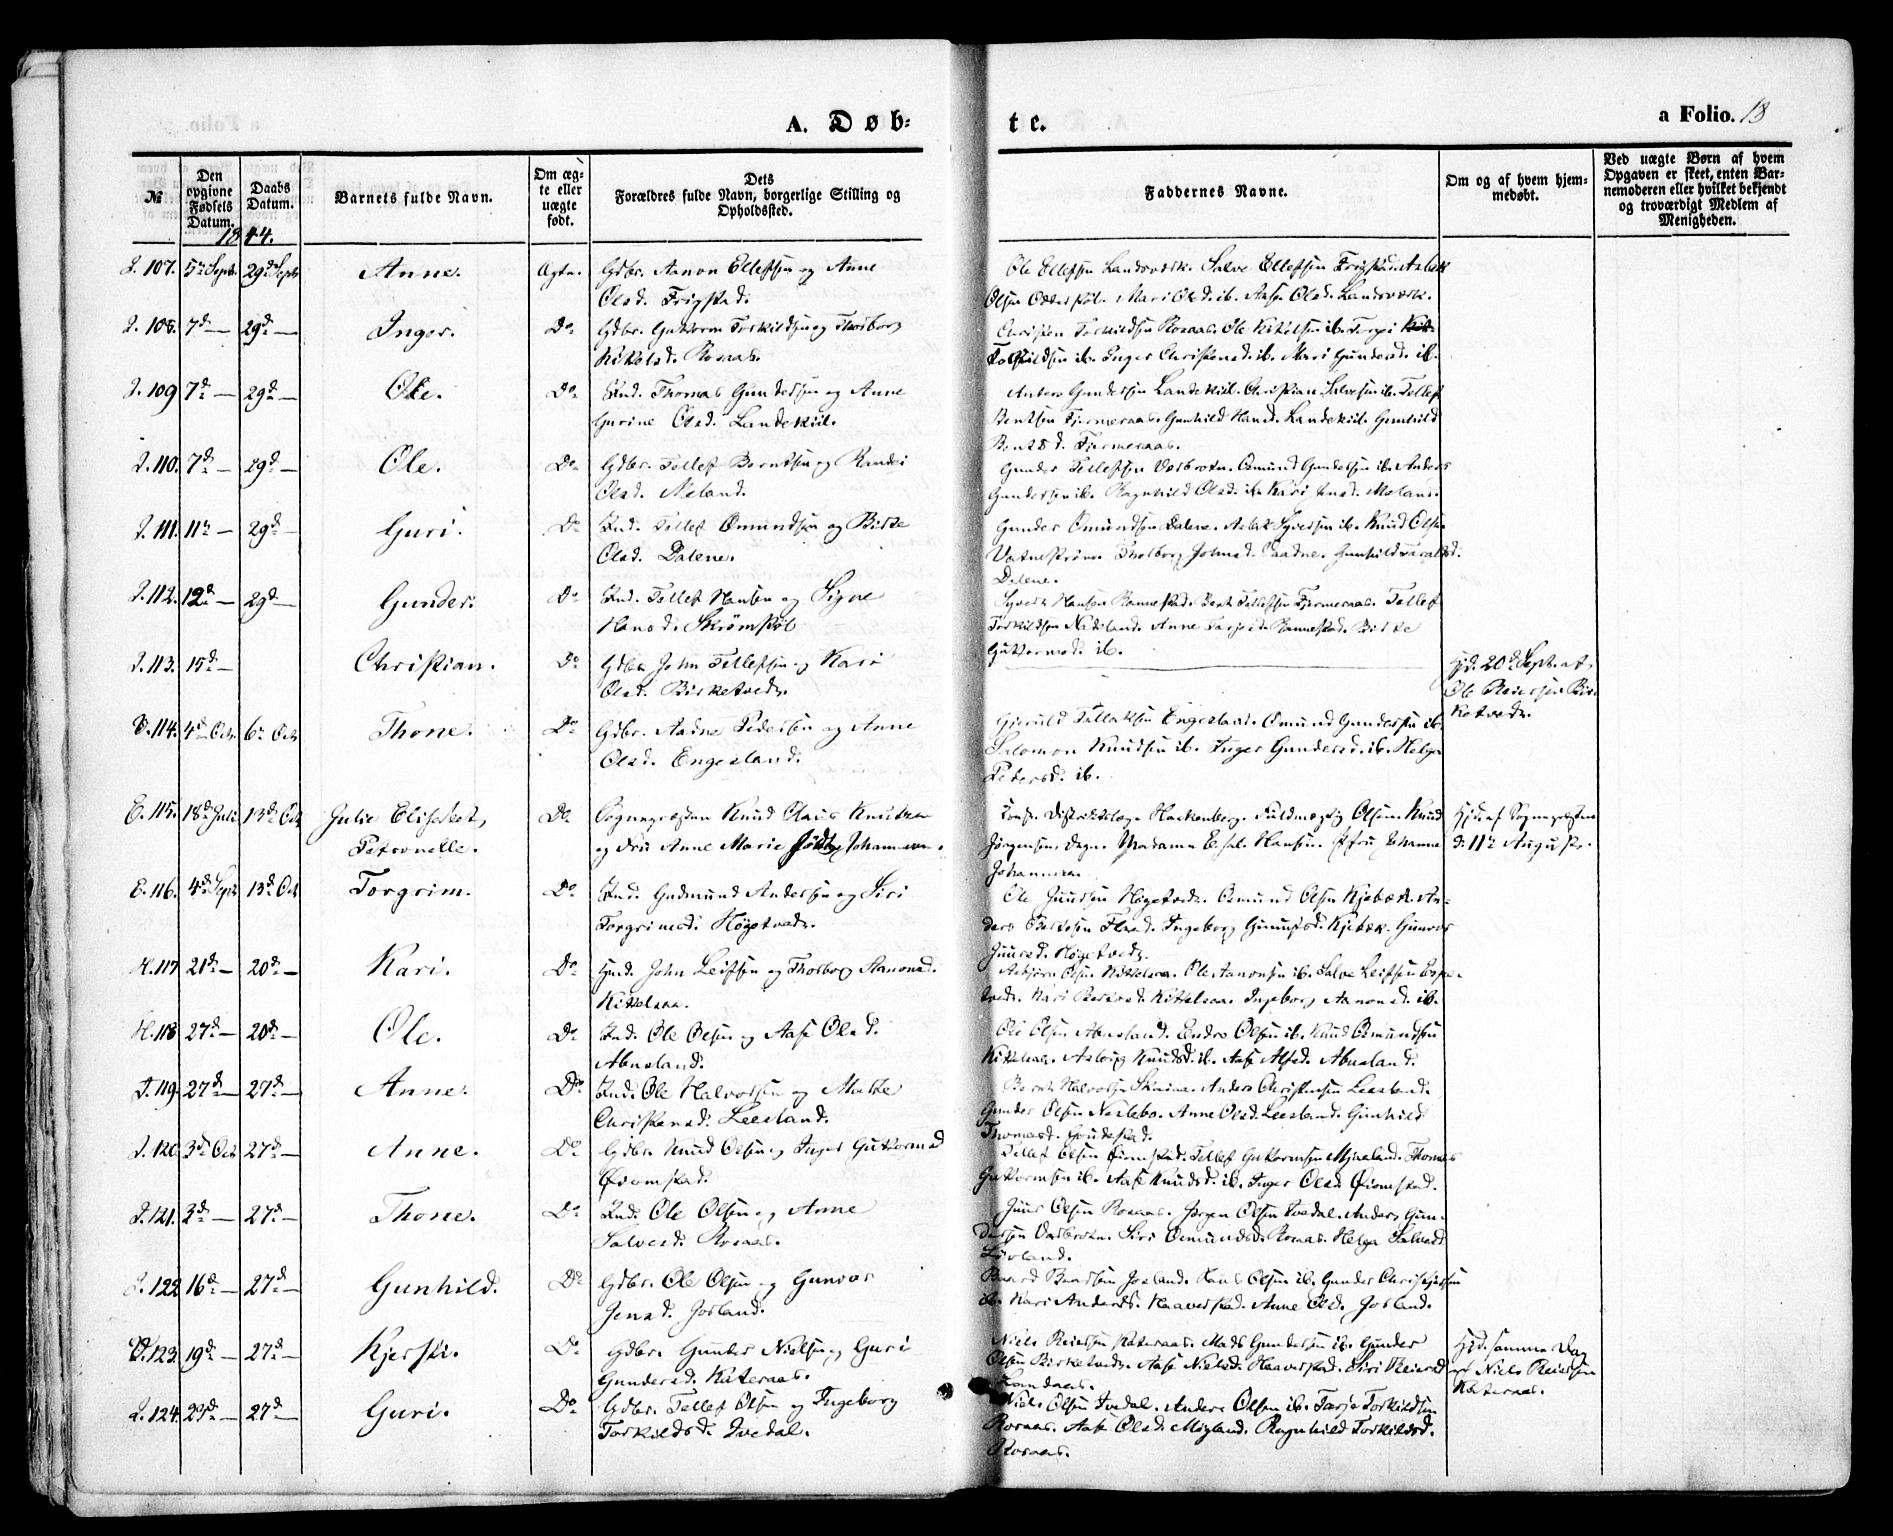 A. Døb=
te.
a Folio. 18
№
Den opgivne Fødsels Datum.
Daabs Datum.
Barnets fulde Navn.
Om æg-te eller uægte født.
Dets Forældres fulde Navn, borgerlige Stilling og Opholdssted.
Faddernes Navne.
Om og af hvem hjem-medøbt.
Ved uægte Børn af hvem Opgaven er skeet, enten Bar-nemoderen eller hvilket bekjendt og troværdigt Medlem af Menigheden.
1844.
107. 5te Septr 29d Septr Anne. Ægte. Gdbr. Aanon Ellefsen og Anne
Olsd. Frigstad.
Ole Ellefsen Landsværk. Salve Ellefsen Frigstad. Aslak
Olsen. Mari Olsd. ib. Aase Olsd. Landsværk.
108. 7d — 29d — Inger. Do Gdbr. Guttorm Torkildsen og Thorborg
Kittelsd. Rosaas.
Christen Torkildsen Rosaas. Ole Kittelsen ib. Terje
Torkildsen ib. Inger Christensd. ib. Mari Gundersd. ib.
109 7d — 29d — Ole. Do Ind. Thomas Gundersen og Anne
Gurine Olsd. Landekiil.
Anders Gundersen Landekiil. Christian Salvesen ib. Tellef
Bentsen Fjermeraas. Gunhild Hansd. Landekiil. Gunhild
Bentsd. Fjermeraas.
110. 7d — 29d — Ole. Do Gdbr. Tellef Berntsen og Randei
Olsd. Meland.
Gunder Tellefsen Vasbrotn. Osmund Gundersen ib. Anders
Gundersen ib. Ragnhild Olsd. ib. Kari Jensd. Meland.
111. 11te — 29d — Guri. Do Ind. Tellef Omundsen og Birte
Olsd. Dalene.
Gunder Omundsen Dalene. Aslak Syversen ib. Knud Olsen
Vatnstrøm. Thorborg Johnsd. Gunhild
Dalene.
112. 12d — 29d — Gunder. Do Ind. Tellef Hansen og Signe
Hansd. Strømstøl
Syvert Hansen Rannestad. Bent Tellefsen Fjermeraas. Tellef
Torkildsen Natveland. Anne Tarjeisd. Rannestad. Birte
Guttormsd. ib.
113. 15d — Christian. Do Gdbr. John Tellefsen og Kari
Olsd. Birketvedt.
Hjd. 20d Sept. af
Ole Reiersen Bir-
ketvedt.
114. 4d Octr 6te Octr Thone. Do Gdbr. Aadne Pedersen og Anne
Olsd. Engesland.
Gjeruld Tellaksen Engesland. Osmund Gundersen ib.
Salomon Knudsen ib. Inger Gundersd. ib. Helge
Petersd. ib.
E. 115. 18d Juli 13d Oct Julie Elisabet, Do Sognepræsten Knud Claus Knutzen
Petronelle.
og Fru Anne Marie født Johannesen.
Const. Districtslæge Hackenberg. Fuldmægtig Olsen. Knud
Jørgensen Dagn. Madame Hansen. Jfru Johanne
Johannesen
Hjd. af Sognepræsten
d. 11te August.
E. 116. 4d Septr 13d Oct Torgrim. Do Ind. Gudmund Andersen og Siri
Torgrimsd. Høgetvedt.
Ole Juulsen Høgetvedt. Osmund Olsen Kjebæk. An-
ders Flaad. Ingeborg Kjebæk. Gunvor
Juulsd. Høgetvedt
H. 117 21d — 20d — Kari. Do Gmd. John Leifsen og Thorborg Aanonsd.
Kittelsaa.
Asbjørn Olsen Kittelsaa. Ole Aanonsen ib. Salve Leifsen Espe-
tvedt. Kari Kittelsaa. Ingeborg Aanonsd. ib.
H. 118 27d — 20d — Ole. Do Ind. Ole Olsen og Aase Olsd.
Abusland.
Ole Olsen Abusland. Endre Olsen ib. Knud Osmundsen
Kittelsaa. Aslaug Knudsd. ib. Aase Alfsd. Abusland.
119. 27d — 27d — Anne. Do Ind. Ole Halvorsen og Marte
Christensd. Leesland.
Bernt Halvorsen. Anders Christensen Leesland.
Gunder Olsen Neslebo. Anne Olsd. Leesland. Gunhild
Thomasd.
120. 3d Oct 27d — Anne. Do Gdbr. Knud Olsen og Inger Guttormsd
Øiomstad.
Tellef Olsen Øiomstad. Tellef Guttormsen Mjaaland. Thomas
Guttormsen ib. Aase Knudsd. ib. Inger Olsd. Øiomstad.
121. 3d — 27d — Thone. Do Ind. Ole Olsen og Anne
Salvesd. Rosaas.
Juul Olsen Rosaas. Jørgen Olsen Ivedal. Anders Gun-
dersen Vasbrotn. Siri Osmundsd. Rosaas. Helga Salvesd
Løvland.
122 16d — 27d — Gunhild. Do Gdbr. Ole Olsen og Gunvor
Jensd. Josland.
Baard Baardsen Josland. Lars Olsen ib. Gunder Christensen
ib. Kari Andersd. Haaverstad. Anne Olsd. Josland.
123. 19d — 27d — Kjersti. Do Gdbr. Gunder Nielsen og Guri
Gundersd. Kateraas.
Niels Reiersen Kateraas. Mads Gundersen ib. Gunder
Olsen Birketvedt. Aase Nielsd. Haaverstad. Siri Reiersd
Landaas.
Hjd. samme Dag
af Niels Reiersen
Kateraas.
124. 23d — 27d — Guri. Do Gdbr. Tellef Olsen og Ingeborg
Torkildsd. Ivedal.
Niels Olsen Ivedal. Anders Olsen ib. Tarje Torkildsen
Rosaas. Aase Olsd. Migland. Ragnhild Torkildsd.
Rosaas.